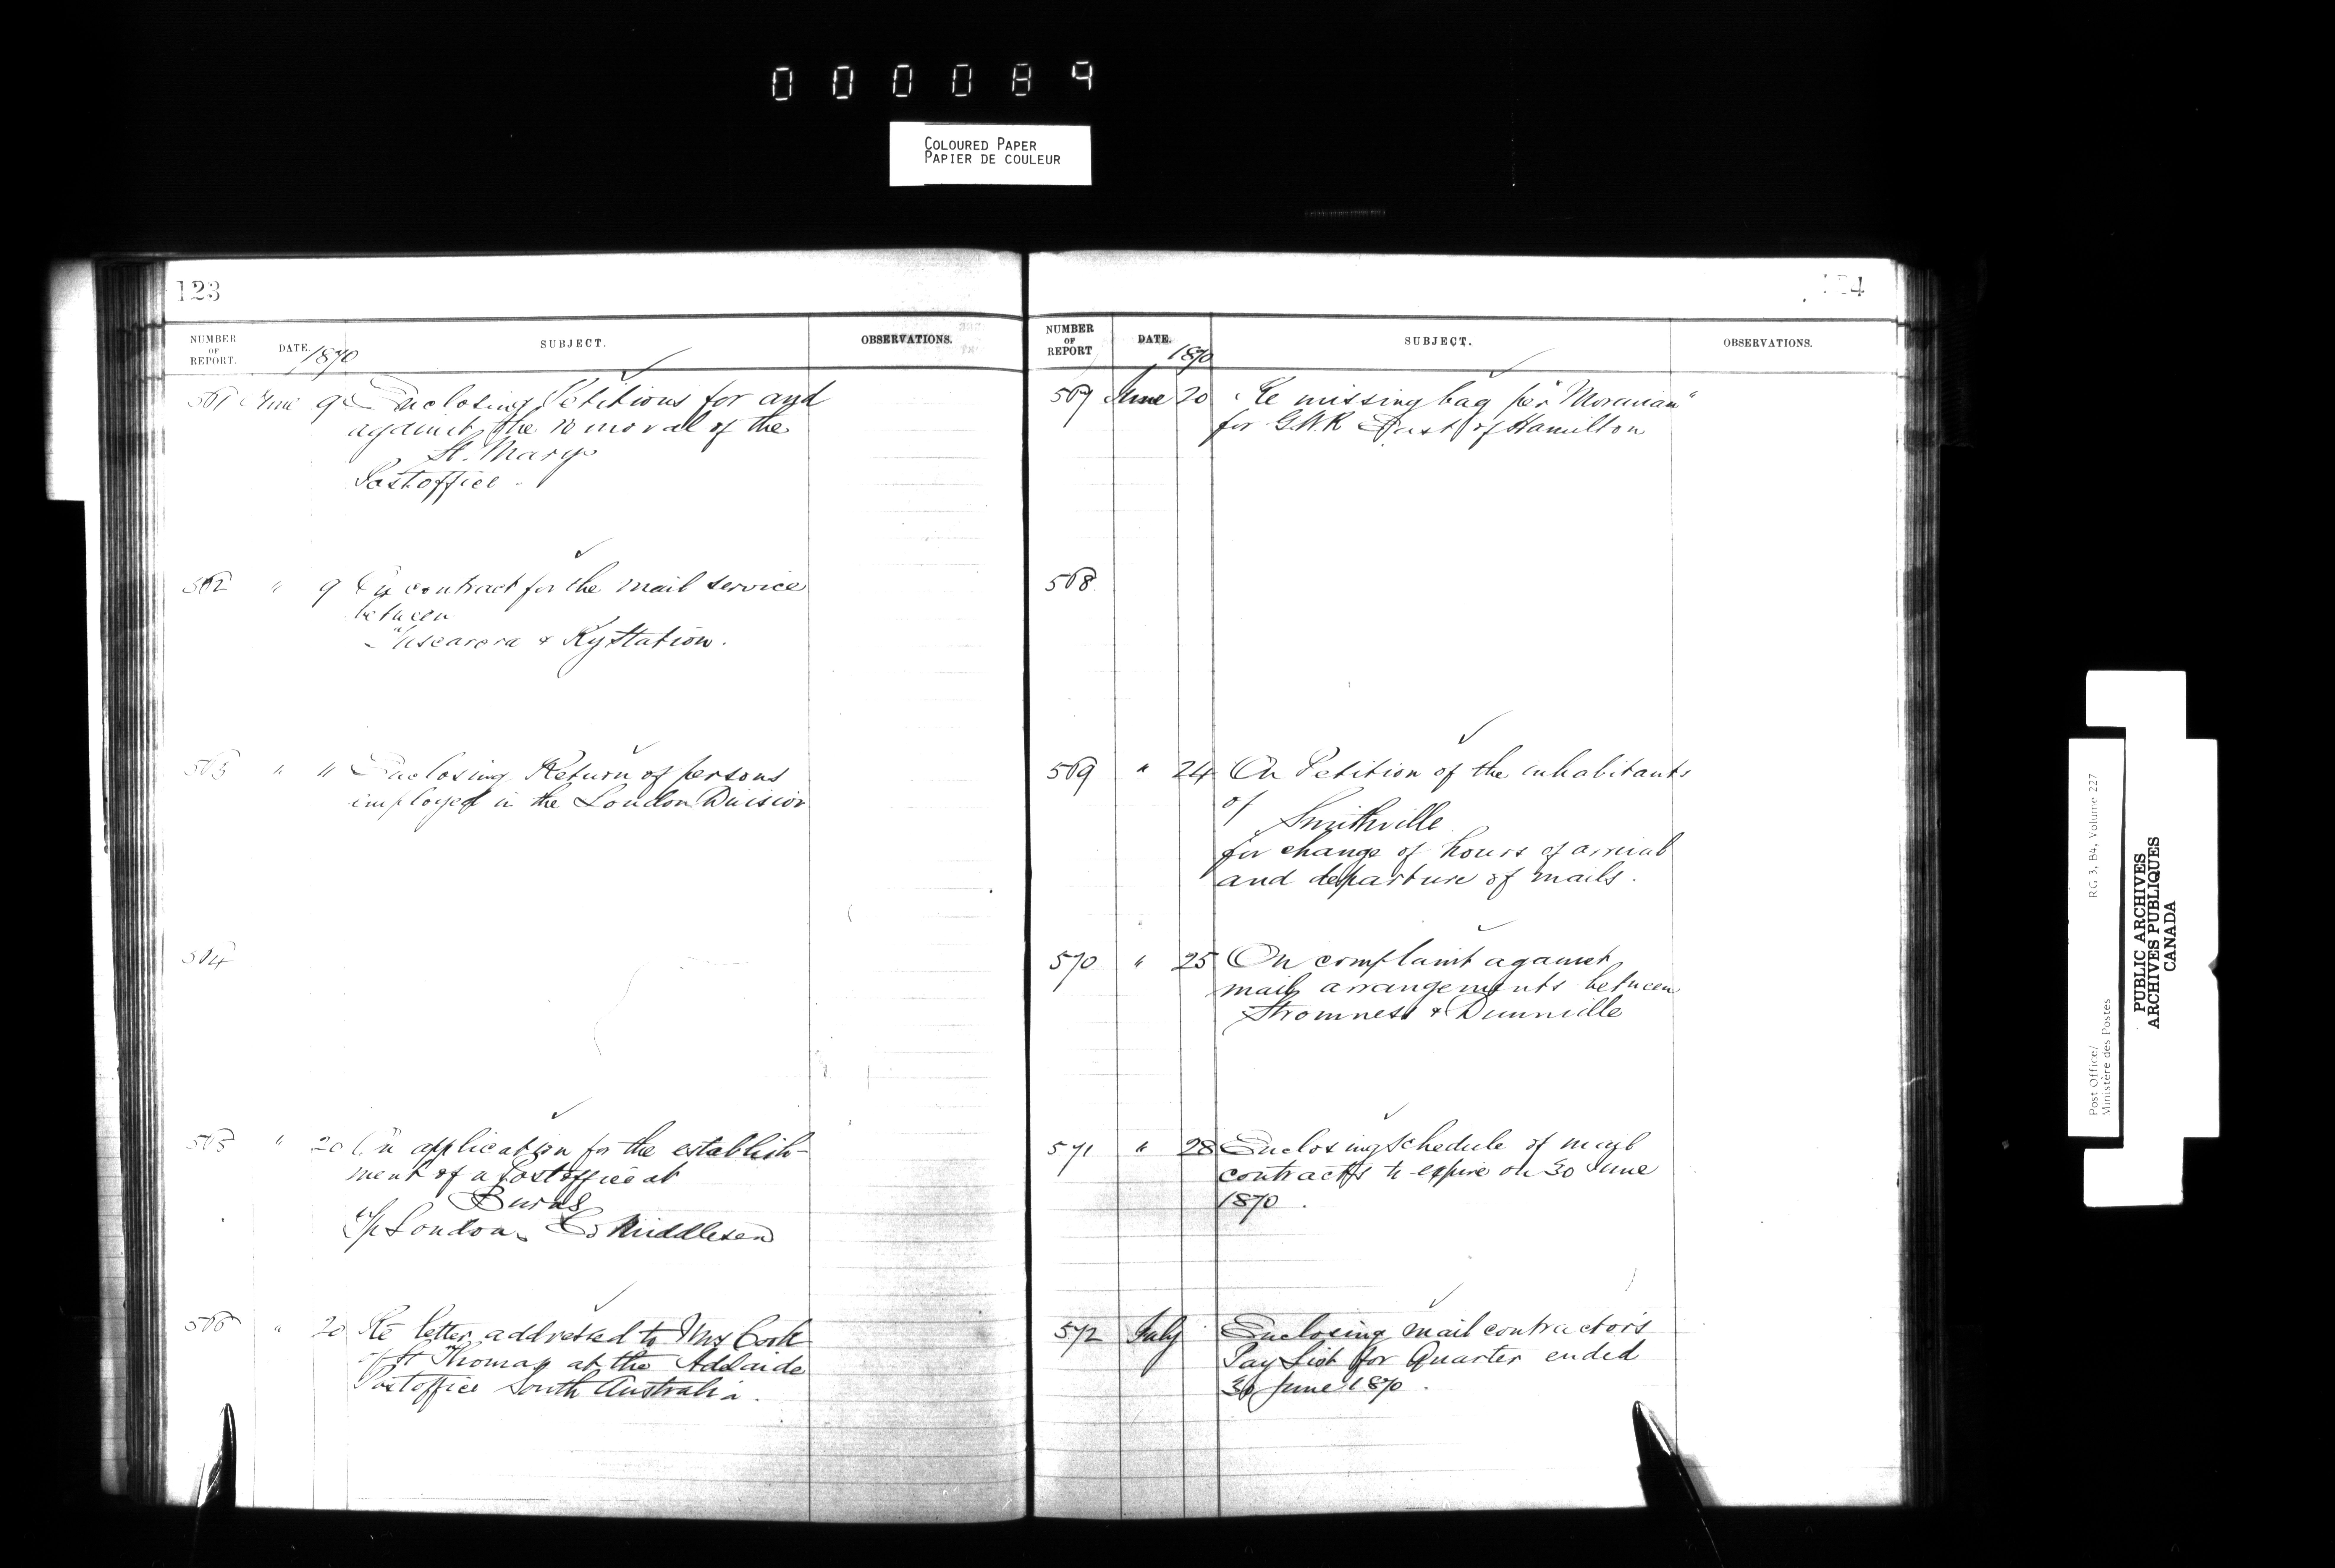 000089
COLOURED PAPER
PAPIER DE COULEUR
123
NUMBER OF REPORT. DATE. 1870 SUBJECT. OBSERVATIONS.
561 June 9 Enclosing Petitions for and
against the removal of the
St. Marys
Postoffice -
562 " 9 On contract for the mail service
between
Tuscarora & Ry Station.
563 " " Enclosing Return of persons
employed in the London Division
564
565 " 20 On application for the establish-
ment of a Postoffice at
Burns
T/p London, Co Middlesex
566 " 20 Re letter addressed to Mrs Cook
of St Thomas at the Adelaide
Postoffice South Australia.
124
NUMBER OF REPORT DATE. 1870 SUBJECT. OBSERVATIONS.
567 June 20 Re missing bag per "Moravian"
for G.W.R East of Hamilton
568.
569 " 24 On Petition of the inhabitants
of
Smithville
for change of hours of arrival
and departure of mails.
570 " 25 On complaint against
mail arrangements between
Stromness & Dunnville
571 " 28 Enclosing schedule of mail
contracts to expire on 30 June
1870.
572 July Enclosing mail contractors
Pay List for Quarter ended
30 June 1870.
Post Office/
Ministère des Postes
RG 3, B4, Volume 227
PUBLIC ARCHIVES
ARCHIVES PUBLIQUES
CANADA